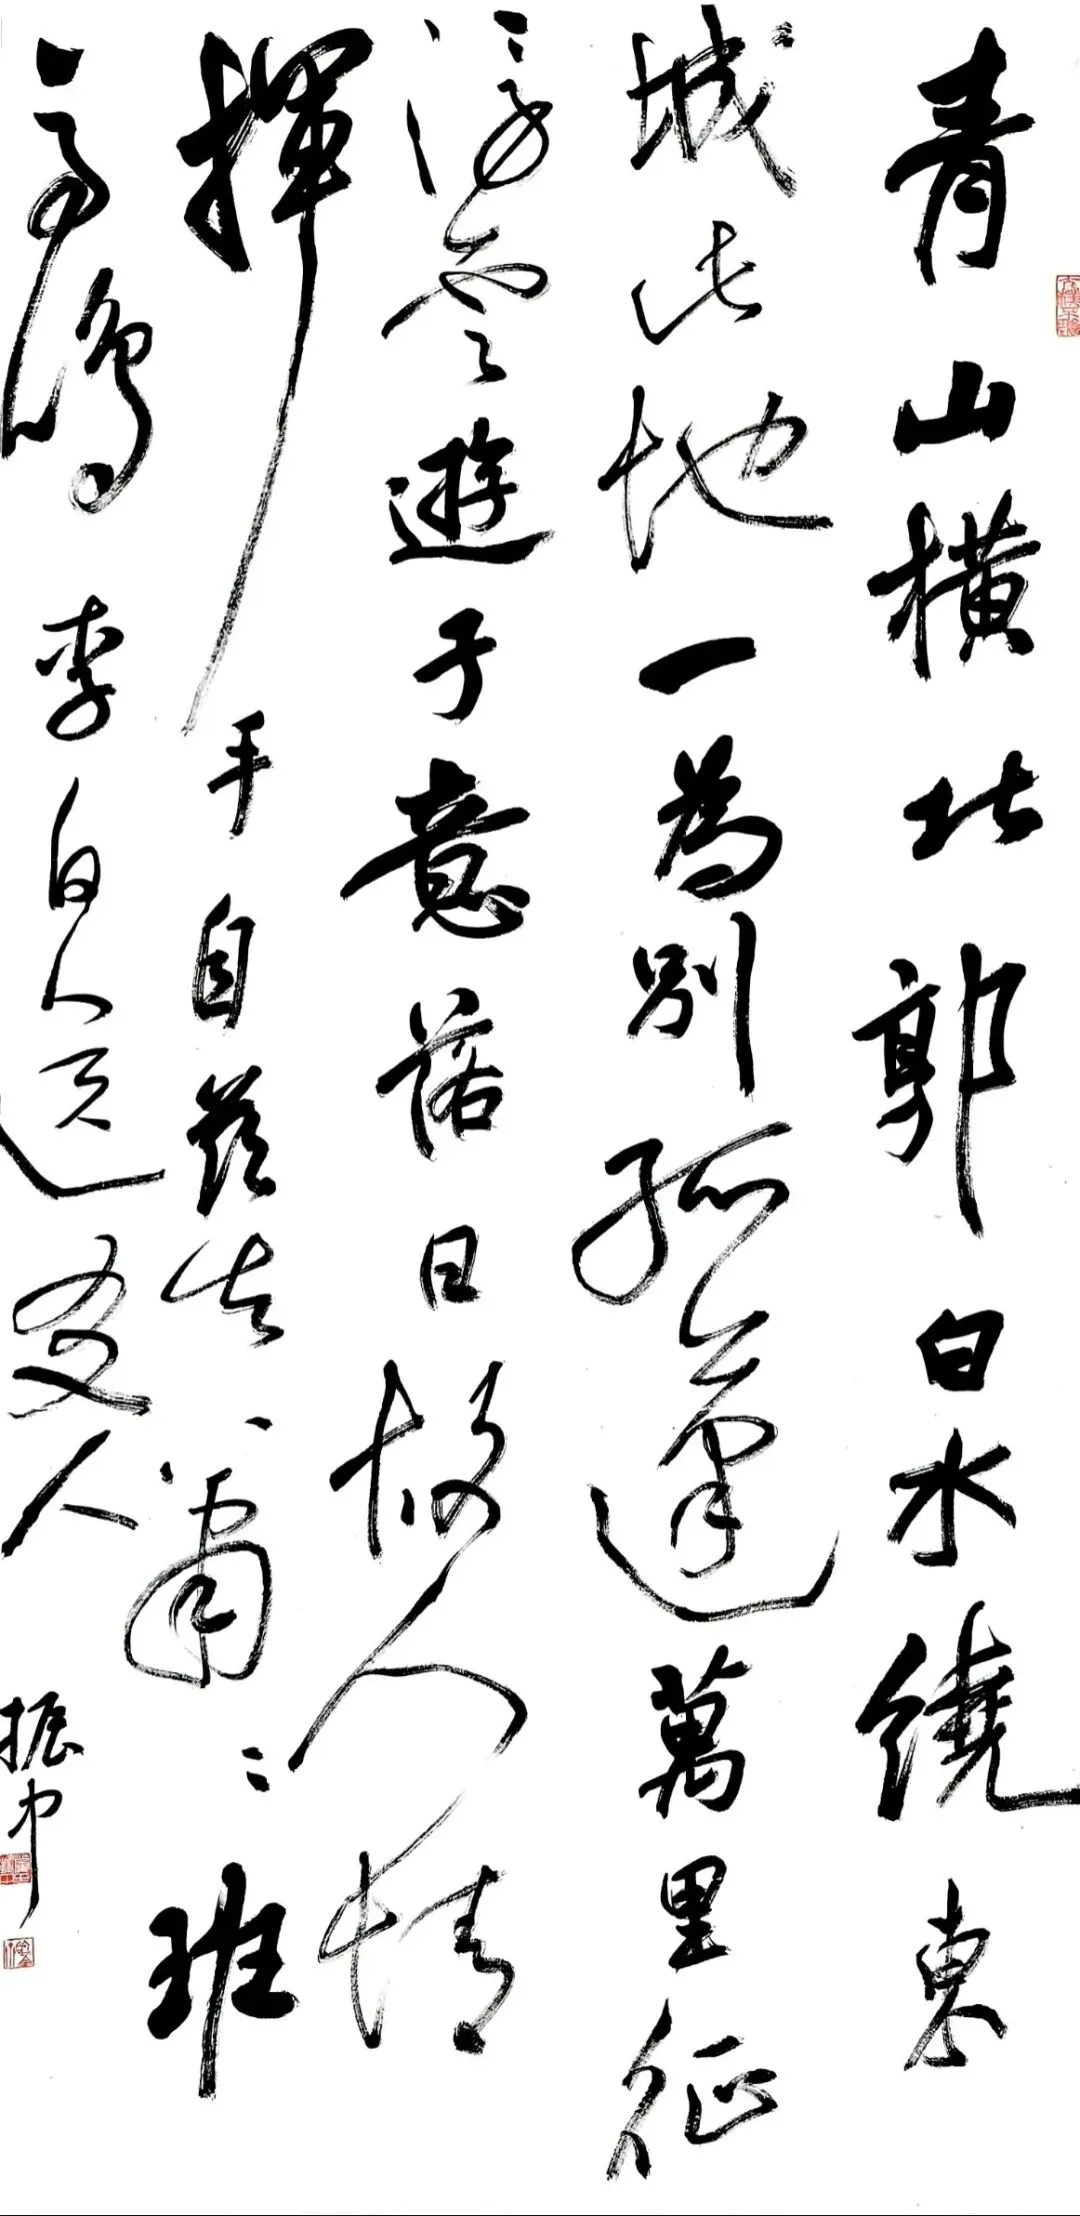 青山橫北郭白水繞東
城此地一為別孤蓬萬里征
浮雲遊子意落日故人情
揮手自茲去蕭〻班
馬鳴 李白 送友人 振中